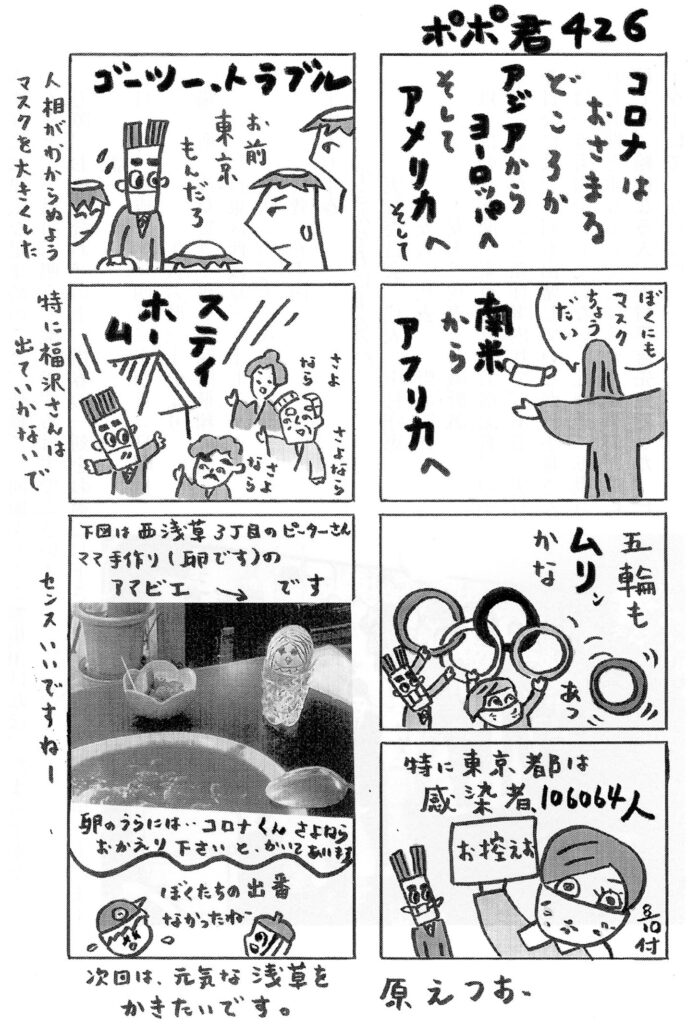 ポポ君426
コロナは
おさまる
どころか
アジアから
ヨーロッパへ
そして
アメリカへ
そして
ぼくにも
マスク
ちょう
だい
南米
から
アフリカへ
五輪も
ムリン
かな
あっ
特に東京都は
感染者106064人
お控えお
8/10
付
原えつお
ゴーツー、トラブル
お前
東京
もんだろ
人相がわからぬよう
マスクを大きくした
ステイ
ホー
ム
さよ
なら
さよなら
さよ
なら
特に福沢さんは
出ていかないで
下図は西浅草3丁目のピーターさん
ママ手作り(卵です)の
アマビエ → です
センスいいですねー
卵のうらには‥コロナくんさよなら
おかえり下さいと、かいてあります
ぼくたちの出番
なかったねー
次回は、元気な浅草を
かきたいです。